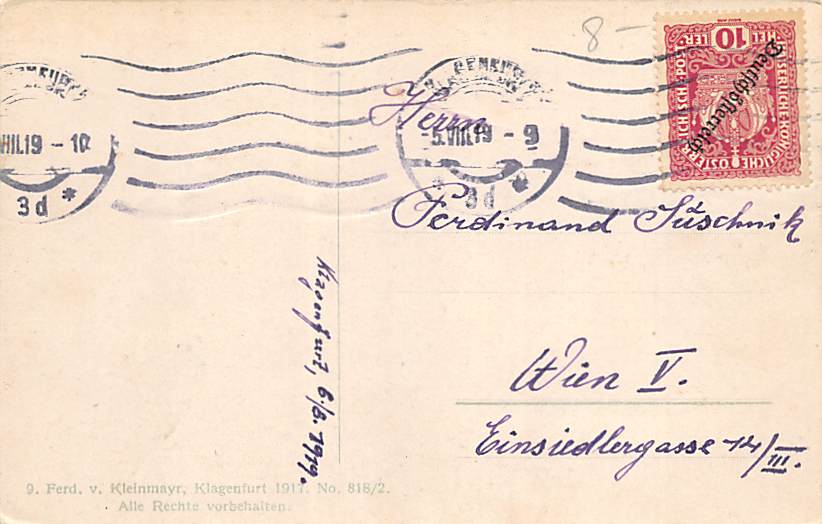 8-
KAISERLICH KÖNIGLICHE ÖSTERREICHISCHE POST
HEL 10 LER
Deutschösterreich
KLAGENFURT
VIII.19-10
3d
KLAGENFURT
5.VIII.19-9
3d
Herrn
Ferdinand Suschnik
Wien V.
Einsiedlergasse 14/III.
Klagenfurt, 6./8. 1919.
9. Ferd. v. Kleinmayr, Klagenfurt 1917. No. 818/2.
Alle Rechte vorbehalten.